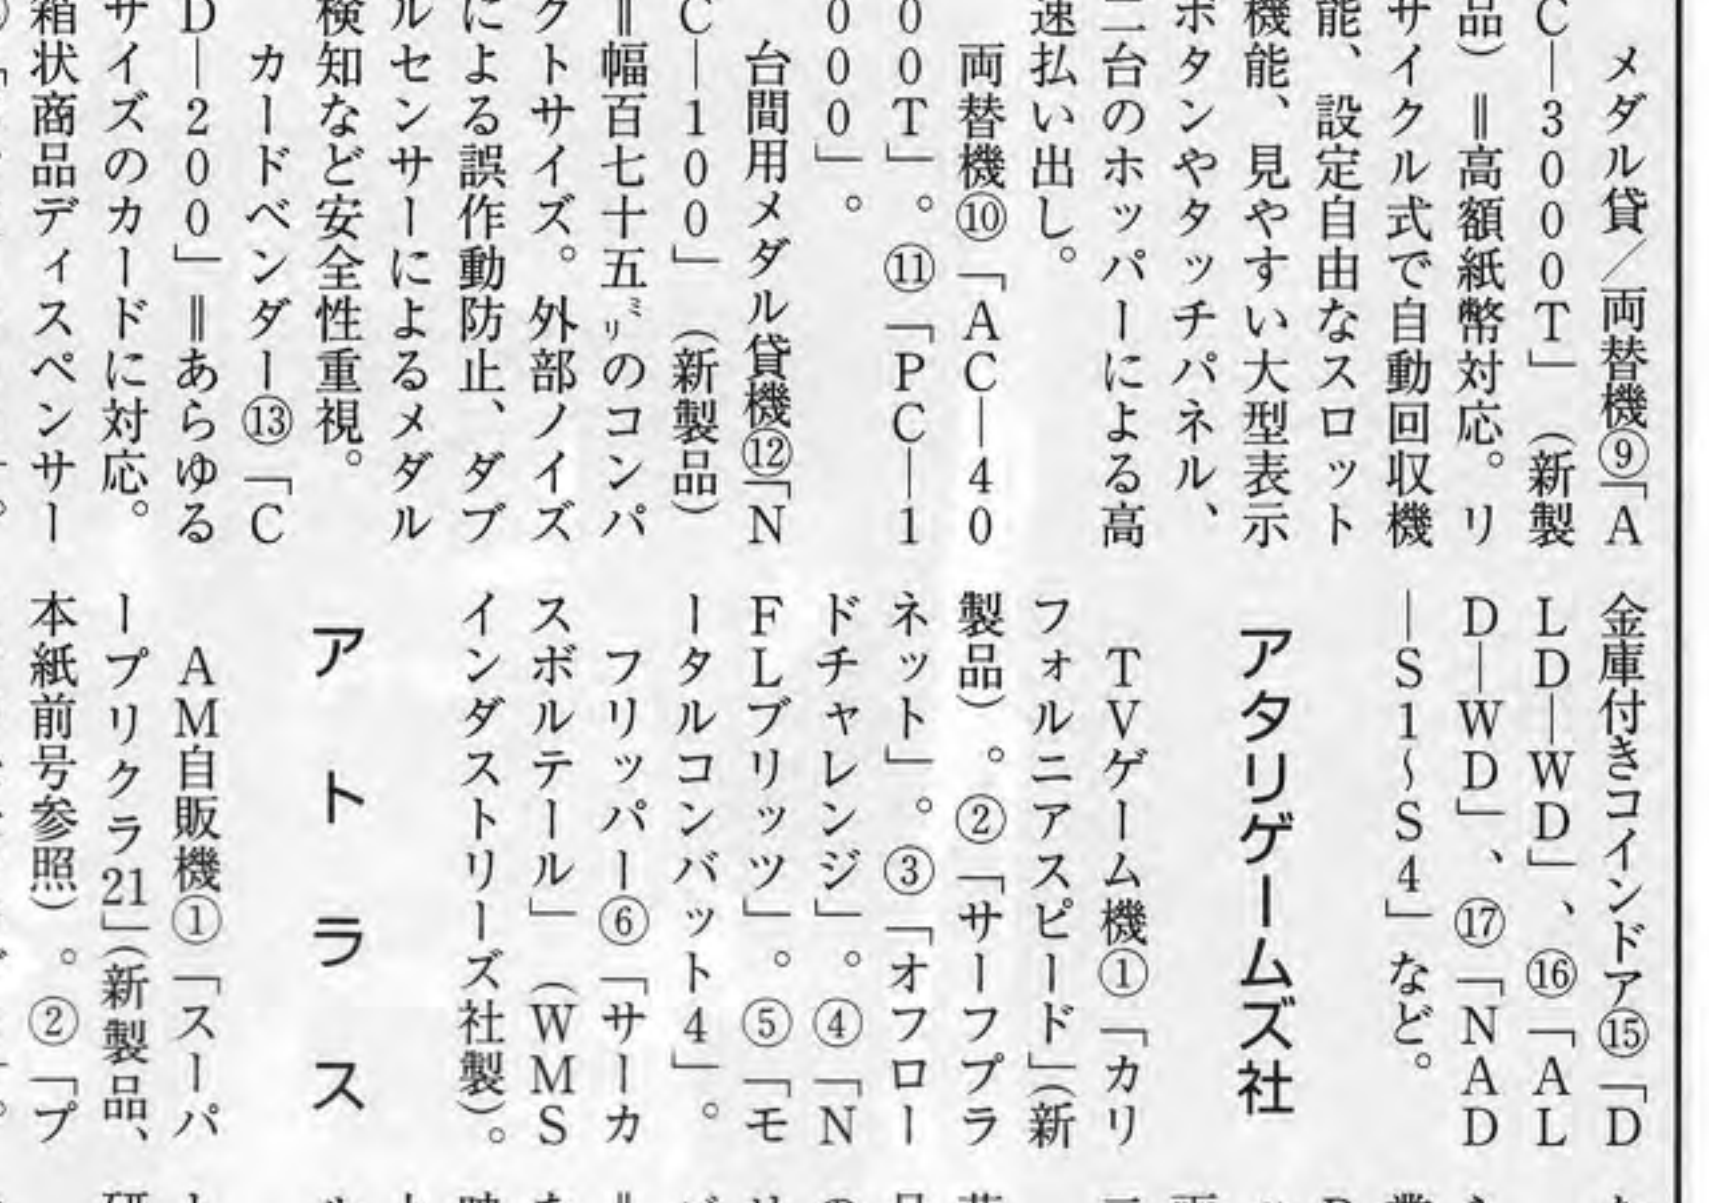 メダル貸/両替機⑨「A
C―3000T」(新製
品)=高額紙幣対応。リ
サイクル式で自動回収機
能、設定自由なスロット
機能、見やすい大型表示
ボタンやタッチパネル、
二台のホッパーによる高
速払い出し。
両替機⑩「AC―40
00T」。⑪「PC―1
000」。
台間用メダル貸機⑫「N
C―100」(新製品)
=幅百七十五㍉のコンパ
クトサイズ。外部ノイズ
による誤作動防止、ダブ
ルセンサーによるメダル
検知など安全性重視。
カードベンダー⑬「C
D―200」=あらゆる
サイズのカードに対応。
箱状商品ディスペンサー
金庫付きコインドア⑮「D
LD―WD」、⑯「AL
D―WD」、⑰「NAD
―S1〜S4」など。
アタリゲームズ社
TVゲーム機①「カリ
フォルニアスピード」(新
製品)。②「サーフプラ
ネット」。③「オフロー
ドチャレンジ」。④「N
FLブリッツ」。⑤「モ
ータルコンバット4」。
フリッパー⑥「サーカ
スボルテール」(WMS
インダストリーズ社製)。
アトラス
AM自販機①「スーパ
ープリクラ21」(新製品、
本紙前号参照)。②「プ